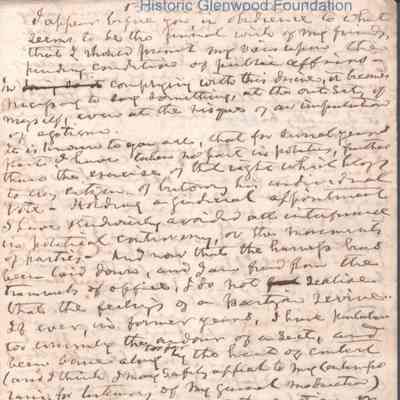 Historic Glenwood Foundation
I appear before you in obedience to what
seems to be the general wish of my friends,
that I should present my views upon the
pending condition of public affairs —
In complying with this desire, it becomes
necessary to say something, at the outset, of
myself, even at the risque of an imputation
of egotism.
It is known to you all, that for several years
past I have taken no part in politics, further
than the exercise of that right which belongs
to every citizen of bestowing his individual
vote. Holding a judicial appointment
I have studiously avoided all interference
in political controversy, or the movements
of parties — And now that the harness has
been laid down, and I am freed from the
trammels of office, I do not realise
that the feelings of a partizan revive.
If ever, in former years, I have partaken
too warmly the ardour of a sect, and
been borne along by the heat of contest
(and I think I may safely appeal to my contempo
raries for testimony of my general moderation)